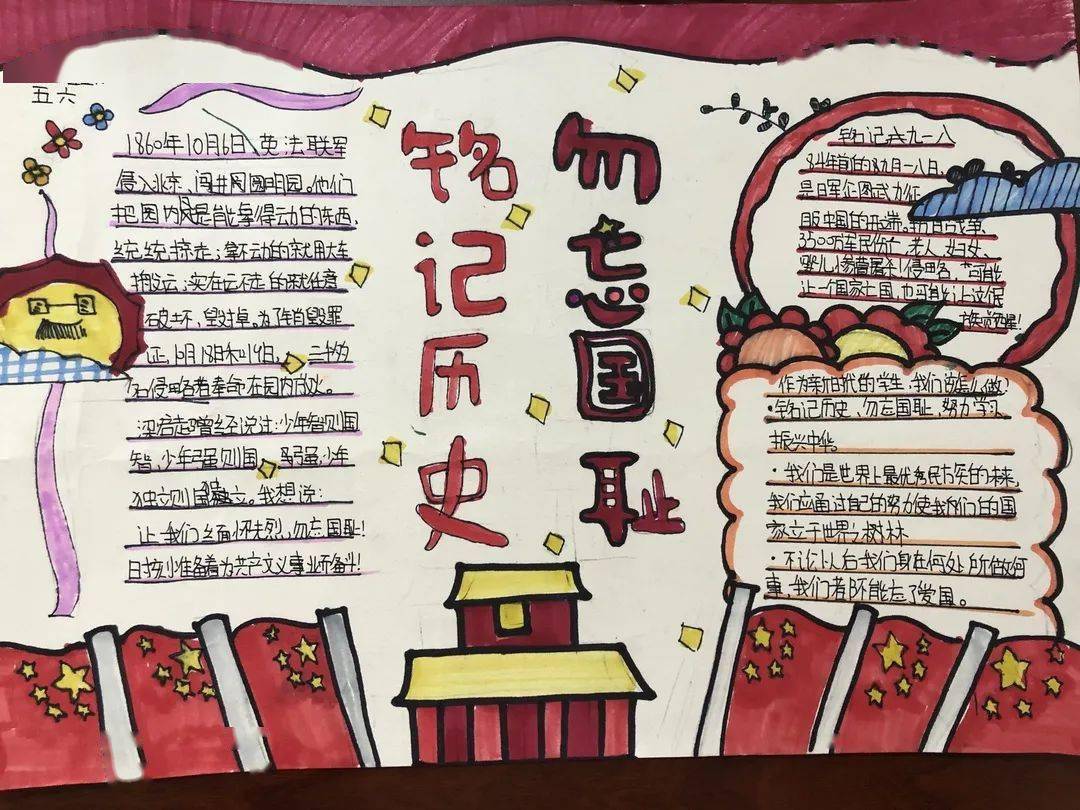 五六
1860年10月6日、英法联军
侵入北京、闯井圆圆明园。他们
把园内凡是能拿得动的东西、
统统掠走；拿不动的就用大车
搬运；实在运不走的就任意
破土坏、毁掉、为了销毁罪
证、10月18日和19日、三千多
名侵略者奉命在园内放处。
梁启超曾经说过：少年智则国
智，少年强则国强，少年
独立则国独立。我想说：
让我们缅怀先烈，勿忘国耻！
时刻准备着为共产主义事业而奋斗！
铭记历史
勿忘国耻
铭记九一八
84年前的9月一八日、
是日军企图武力征
服中国的开端、抗日战争、
3500万军民伤亡、老人、妇女、
婴儿惨曹屠杀！侵略、可能
让一个国家亡国，也可能让这民
族觉醒！
作为新旧代的学生，我们该怎么做！
·铭记历史，勿忘国耻，努力学习
振兴中华。
·我们是世界上最优秀民族的未来，
我们应通过自己的努力使我们的国
家立于世界之树林
·不论以后我们身在何处所做何
事，我们者阝不能忘了爱国。